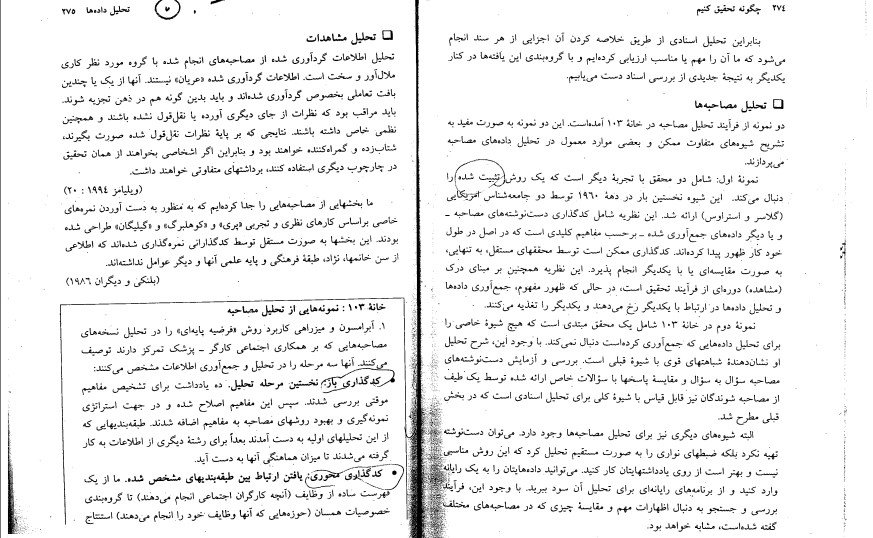 ۲۷۴ چگونه تحقیق کنیم
بنابراین تحلیل اسنادی از طریق خلاصه کردن آن اجزایی از هر سند انجام
می‌شود که ما آن را مهم یا مناسب ارزیابی کرده‌ایم و با گروه‌بندی این یافته‌ها در کنار
یکدیگر به نتیجهٔ جدیدی از بررسی اسناد دست می‌یابیم.
❑ تحلیل مصاحبه‌ها
دو نمونه از فرآیند تحلیل مصاحبه در خانهٔ ۱۰۳ آمده‌است. این دو نمونه به صورت مفید به
تشریح شیوه‌های متفاوت ممکن و بعضی موارد معمول در تحلیل داده‌های مصاحبه
می‌پردازند.
نمونهٔ اول: شامل دو محقق با تجربهٔ دیگر است که یک روش تثبیت شده را
دنبال می‌کند. این شیوه نخستین بار در دههٔ ۱۹۶۰ توسط دو جامعه‌شناس امریکایی
(گلاسر و استراوس) ارائه شد. این نظریه شامل کدگذاری دست‌نوشته‌های مصاحبه ـ
و یا دیگر داده‌های جمع‌آوری شده ـ برحسب مفاهیم کلیدی است که در اصل در طول
خود کار ظهور پیدا کرده‌اند. کدگذاری ممکن است توسط محققهای مستقل، به تنهایی،
به صورت مقایسه‌ای یا با یکدیگر انجام پذیرد. این نظریه همچنین بر مبنای درک
(مشاهده) دوره‌ای از فرآیند تحقیق است، در حالی که ظهور مفهوم، جمع‌آوری داده‌ها
و تحلیل داده‌ها در ارتباط با یکدیگر رخ می‌دهند و یکدیگر را تغذیه می‌کنند.
نمونهٔ دوم در خانهٔ ۱۰۳ شامل یک محقق مبتدی است که هیچ شیوهٔ خاصی را
برای تحلیل داده‌هایی که جمع‌آوری کرده‌است دنبال نمی‌کند. با وجود این، شرح تحلیل
او نشان‌دهندهٔ شباهتهای قوی با شیوهٔ قبلی است. بررسی و آزمایش دست‌نوشته‌های
مصاحبه سؤال به سؤال و مقایسهٔ پاسخها با سؤالات خاص ارائه شده توسط یک طیف
از مصاحبه شوندگان نیز قابل قیاس با شیوهٔ کلی برای تحلیل اسنادی است که در بخش
قبلی مطرح شد.
البته شیوه‌های دیگری نیز برای تحلیل مصاحبه‌ها وجود دارد. می‌توان دست‌نوشته
تهیه نکرد بلکه ضبطهای نواری را به صورت مستقیم تحلیل کرد که این روش مناسبی
نیست و بهتر است از روی یادداشتهایتان کار کنید. می‌توانید داده‌هایتان را به یک رایانه
وارد کنید و از برنامه‌های رایانه‌ای برای تحلیل آن سود ببرید. با وجود این، فرآیند
بررسی و جستجو به دنبال اظهارات مهم و مقایسهٔ چیزی که در مصاحبه‌های مختلف
گفته شده‌است، مشابه خواهد بود.
تحلیل داده‌ها ۲۷۵
❑ تحلیل مشاهدات
تحلیل اطلاعات گردآوری شده از مصاحبه‌های انجام شده با گروه مورد نظر کاری
ملال‌آور و سخت است. اطلاعات گردآوری شده «عریان» نیستند. آنها از یک یا چندین
بافت تعاملی بخصوص گردآوری شده‌اند و باید بدین گونه هم در ذهن تجزیه شوند.
باید مراقب بود که نظرات از جای دیگری آورده یا نقل‌قول نشده باشند و همچنین
نظمی خاص داشته باشند. نتایجی که بر پایهٔ نظرات نقل‌قول شده صورت بگیرند،
شتاب‌زده و گمراه‌کننده خواهند بود و بنابراین اگر اشخاصی بخواهند از همان تحقیق
در چارچوب دیگری استفاده کنند، برداشتهای متفاوتی خواهند داشت.
(ویلیامز ۱۹۹۴ : ۲۰)
ما بخشهایی از مصاحبه‌هایی را جدا کرده‌ایم که به منظور به دست آوردن نمره‌های
خاصی براساس کارهای نظری و تجربی «پری» و «کوهلبرگ» و «گیلیگان» طراحی شده
بودند. این بخشها به صورت مستقل توسط کدگذارانی نمره‌گذاری شده‌اند که اطلاعی
از سن خانمها، نژاد، طبقهٔ فرهنگی و پایه علمی آنها و دیگر عوامل نداشته‌اند.
(بلنکی و دیگران ۱۹۸۶)
خانهٔ ۱۰۳ : نمونه‌هایی از تحلیل مصاحبه
۱. آبرامسون و میزراهی کاربرد روش «فرضیه پایه‌ای» را در تحلیل نسخه‌های
مصاحبه‌هایی که بر همکاری اجتماعی کارگر ـ پزشک تمرکز دارند توصیف
می‌کنند. آنها سه مرحله را در تحلیل و جمع‌آوری اطلاعات مشخص می‌کنند:
• کدگذاری باز: نخستین مرحله تحلیل. ده یادداشت برای تشخیص مفاهیم
موقتی بررسی شدند. سپس این مفاهیم اصلاح شده و در جهت استراتژی
نمونه‌گیری و بهبود روشهای مصاحبه به مفاهیم اضافه شدند. طبقه‌بندیهایی که
از این تحلیلهای اولیه به دست آمدند بعداً برای رشتهٔ دیگری از اطلاعات به کار
گرفته می‌شدند تا میزان هماهنگی آنها به دست آید.
• کدگذاری محوری: یافتن ارتباط بین طبقه‌بندیهای مشخص شده. ما از یک
فهرست ساده از وظایف (آنچه کارگران اجتماعی انجام می‌دهند) تا گروه‌بندی
خصوصیات همسان (حوزه‌هایی که آنها وظایف خود را انجام می‌دهند) استنتاج